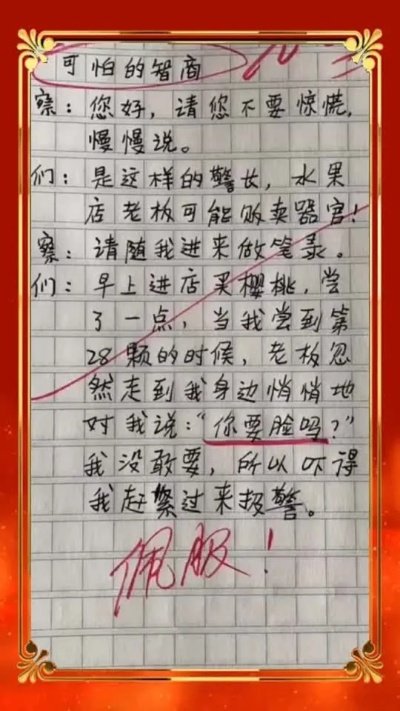 可怕的智商
察：您好，请您不要惊慌，
慢慢说。
们：是这样的警长，水果
店老板可能贩卖器官！
察：请随我进来做笔录。
们：早上进店买樱桃，尝
了一点，当我尝到第
28颗的时候，老板忽
然走到我身边悄悄地
对我说：“你要脸吗？”
我没敢要，所以吓得
我赶紧过来报警。
佩服！